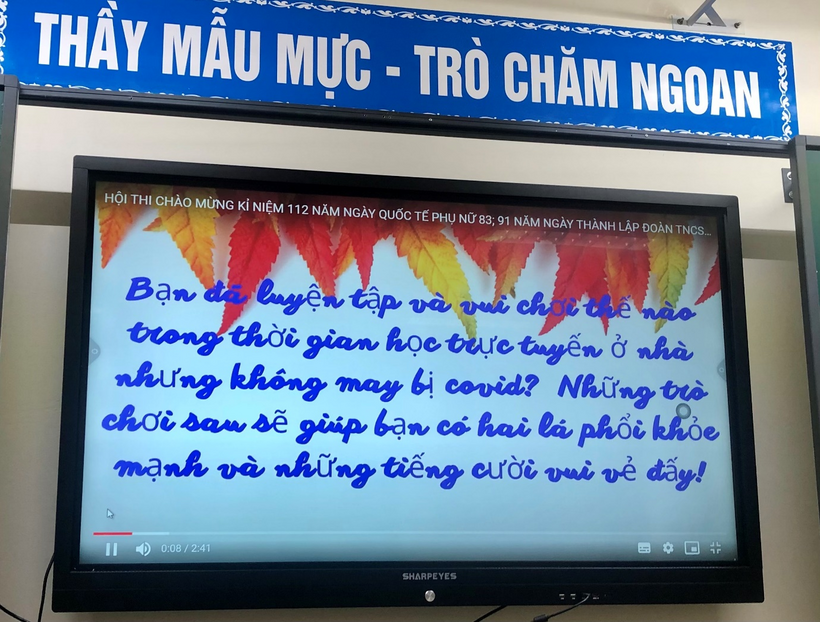 THẦY MẪU MỰC - TRÒ CHĂM NGOAN
HỘI THI CHÀO MỪNG KỈ NIỆM 112 NĂM NGÀY QUỐC TẾ PHỤ NỮ 83; 91 NĂM NGÀY THÀNH LẬP ĐOÀN TNCS...
Bạn đã luyện tập và vui chơi thế nào
trong thời gian học trực tuyến ở nhà
nhưng không may bị covid? Những trò
chơi sau sẽ giúp bạn có hai lá phổi khỏe
mạnh và những tiếng cười vui vẻ đấy!
0:08 / 2:41
SHARPEYES